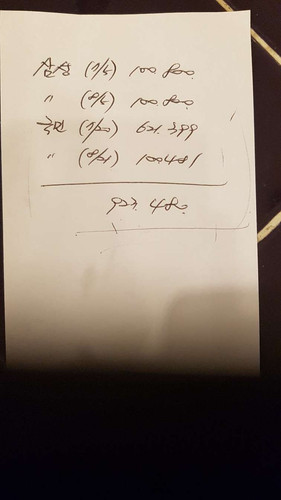 삼성 (7/5) 100.800.
〃 (8/5) 100.800.
국민 (7/20) 621.399
〃 (8/21) 100481
923.480.